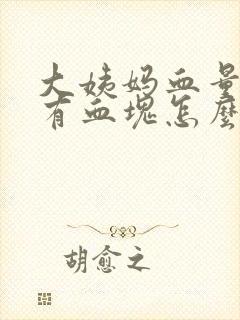 大姨妈血量
有血块怎麼
胡愈之